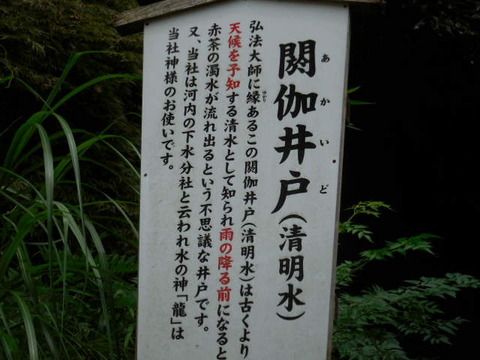 閼伽井戸(清明水)
あかいど
弘法大師に縁あるこの閼伽井戸(清明水)は古くより
天候を予知する清水として知られ雨の降る前になると
赤茶の濁水が流れ出るという不思議な井戸です。
又、当社は河内の下水分社と云われ水の神「龍」は
当社神様のお使いです。